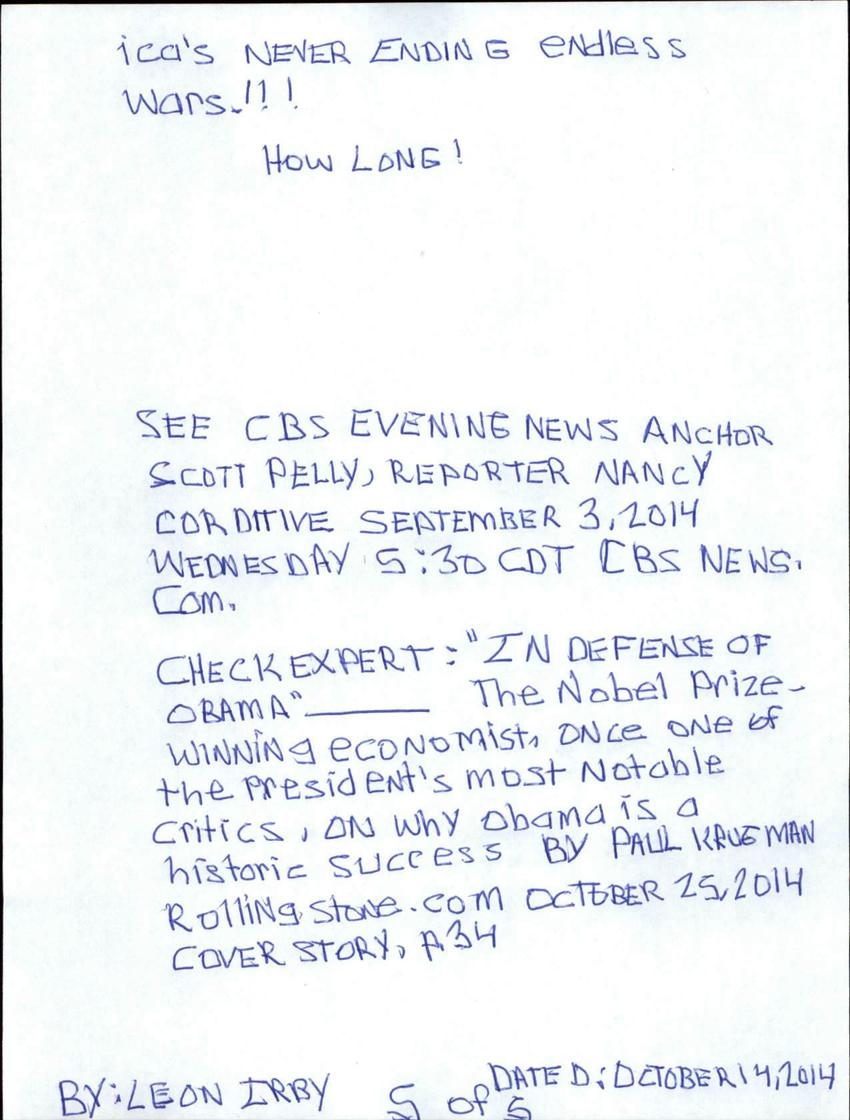 ica's NEVER ENDING endless
Wars.!!!
HOW LONG!
SEE CBS EVENING NEWS ANCHOR
SCOTT PELLY, REPORTER NANCY
CORDITIVE SEPTEMBER 3, 2014
WEDNESDAY 5:30 CDT CBS NEWS.
Com.
CHECK EXPERT: "IN DEFENSE OF
OBAMA"______ The Nobel Prize-
WINNING economist, ONCE ONE of
the President's most Notable
Critics, ON Why Obama is a
historic success BY PAUL KRUGMAN
Rolling Stone.com OCTOBER 25, 2014
COVER STORY, P.34
BY: LEON IRBY 5 of 5 DATED: OCTOBER 14, 2014